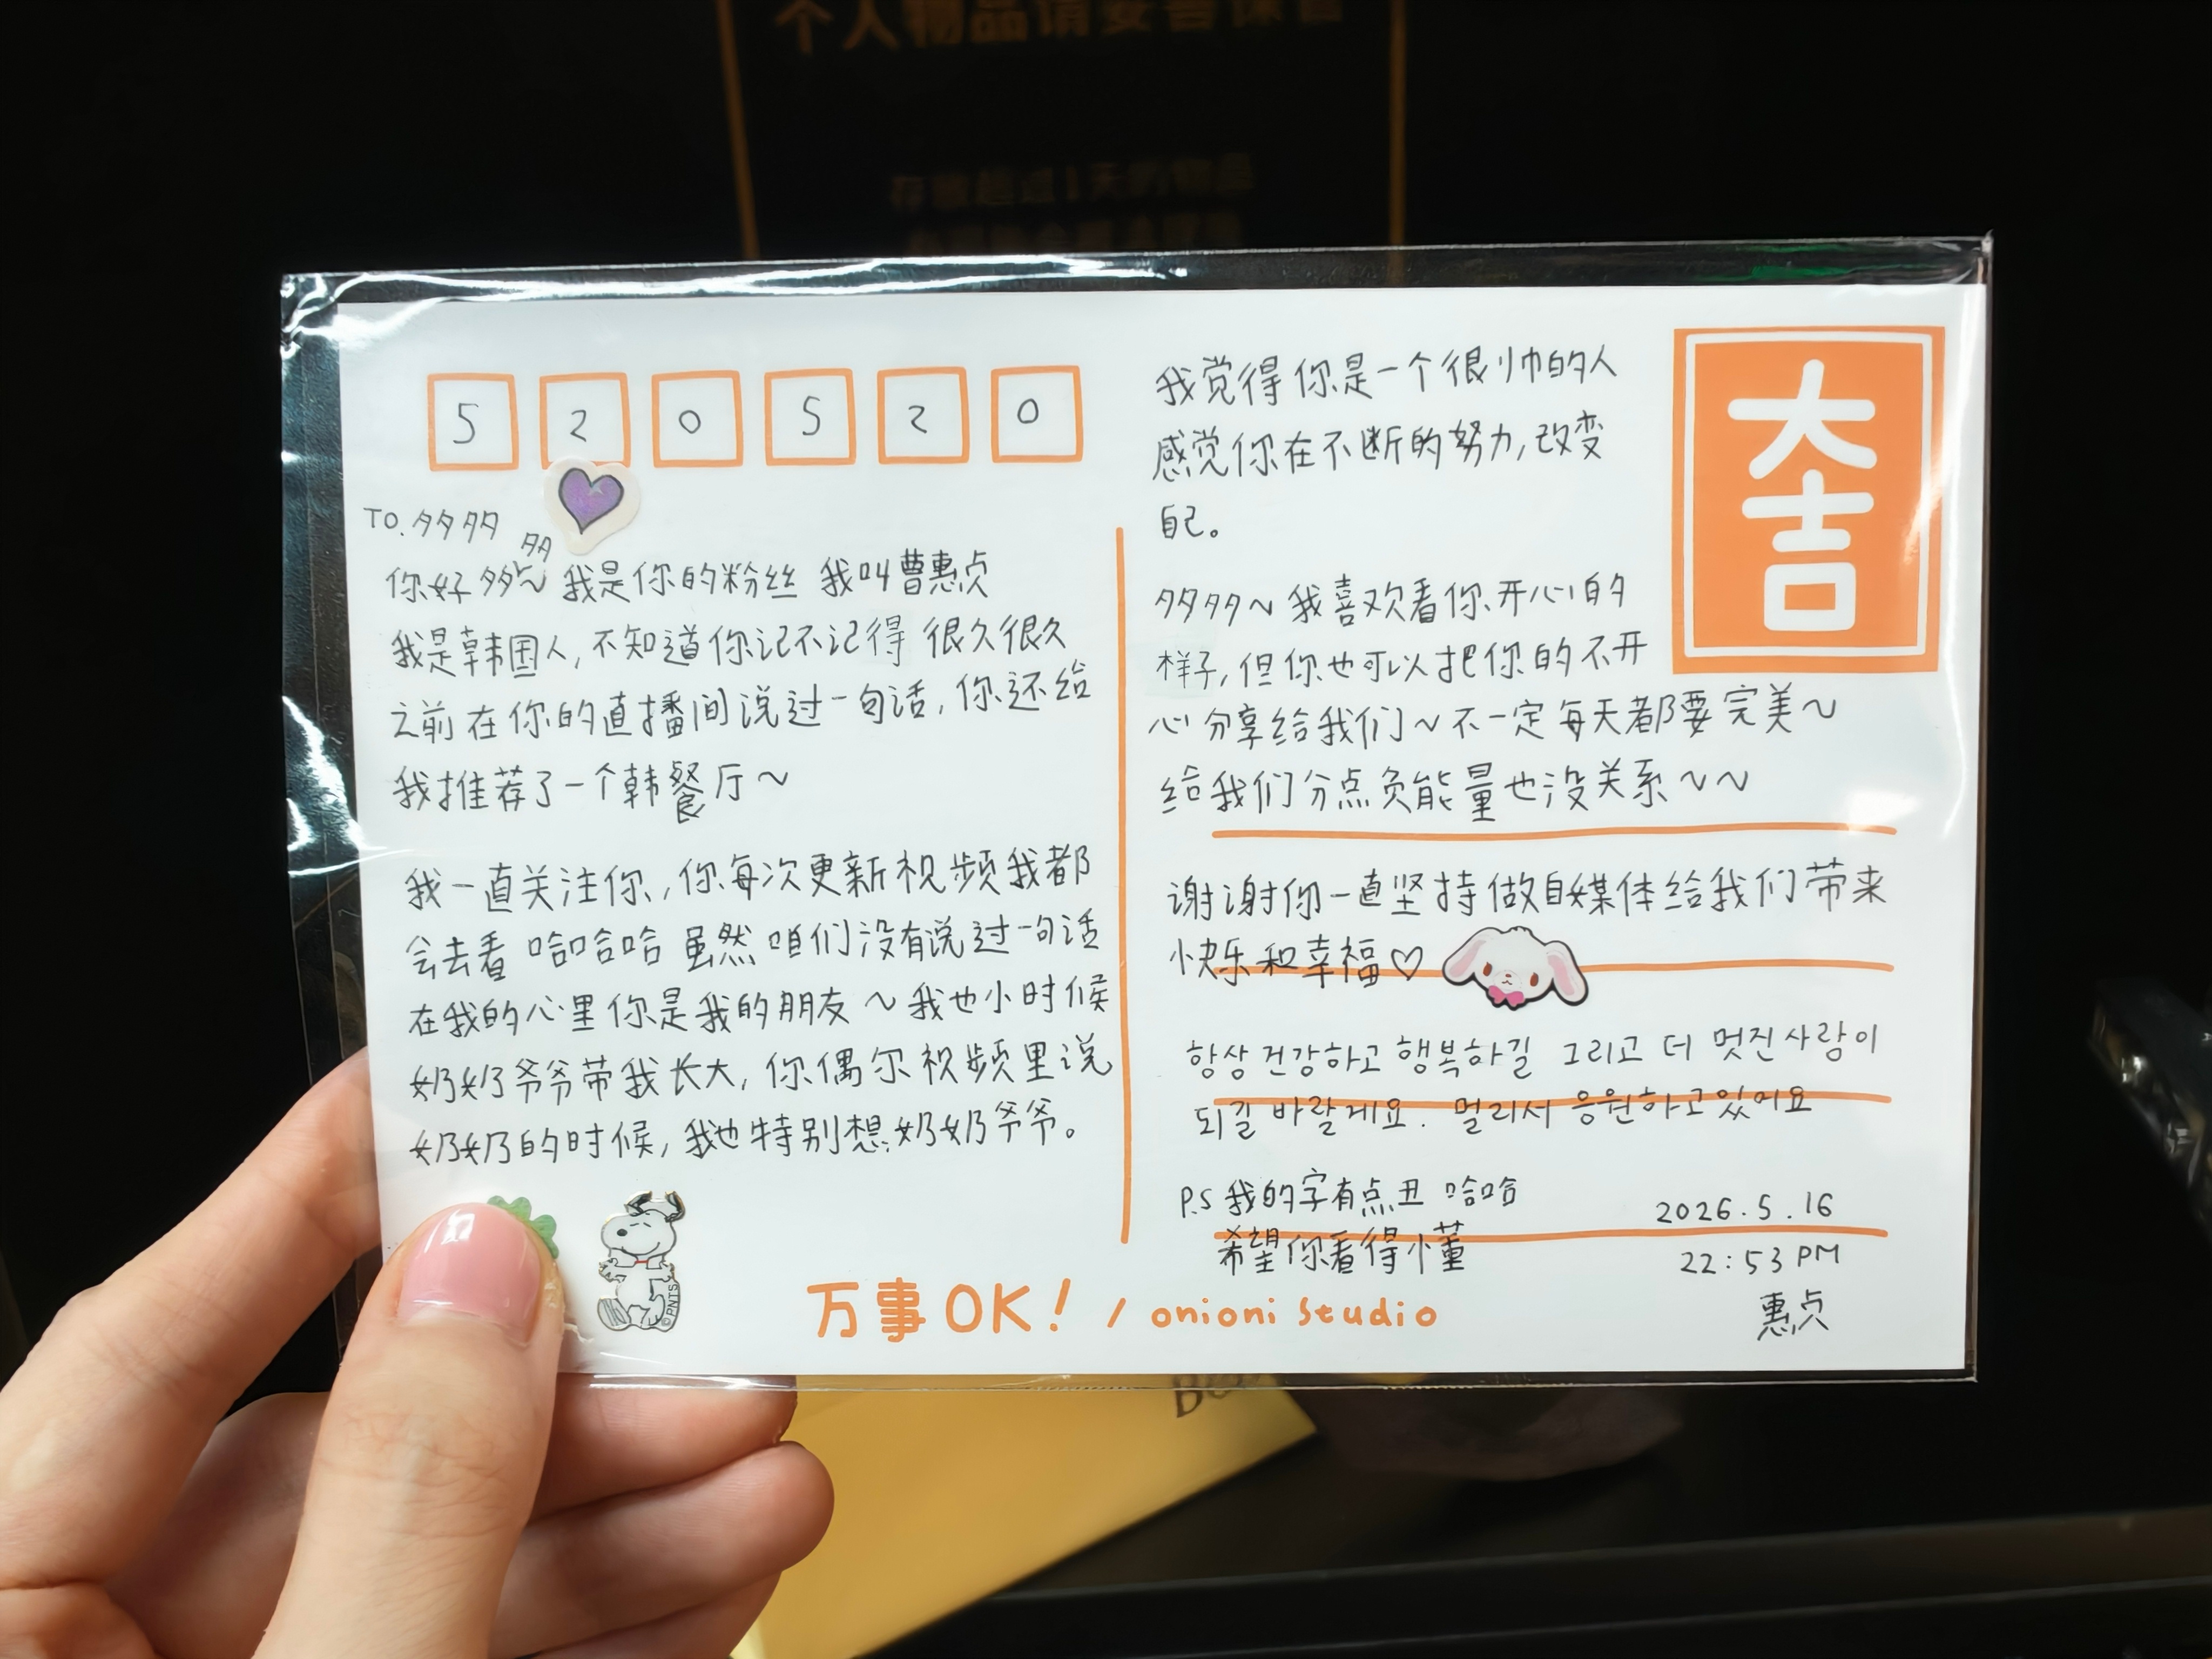 个人物品请妥善保管
5 2 0 5 2 0
TO. 多多
多
你好多多~ 我是你的粉丝 我叫曹惠贞
我是韩国人, 不知道你记不记得 很久很久
之前在你的直播间说过一句话, 你还给
我推荐了一个韩餐厅~
我一直关注你, 你每次更新视频我都
会去看 哈哈哈 虽然咱们没有说过一句话
在我的心里你是我的朋友~我也小时候
奶奶爷爷带我长大, 你偶尔视频里说
奶奶的时候, 我也特别想奶奶爷爷。
我觉得你是一个很帅的人
感觉你在不断的努力, 改变
自己。
多多~我喜欢看你开心的
样子, 但你也可以把你的不开
心分享给我们~不一定每天都要完美~
给我们分点负能量也没关系~~
谢谢你一直坚持做自媒体给我们带来
快乐和幸福♡
항상 건강하고 행복하길 그리고 더 멋진사람이
되길 바랄게요. 멀리서 응원하고있어요
P.S 我的字有点丑 哈哈
希望你看得懂
2026.5.16
22:53 PM
惠贞
大吉
万事OK! / onioni studio
©PNTS